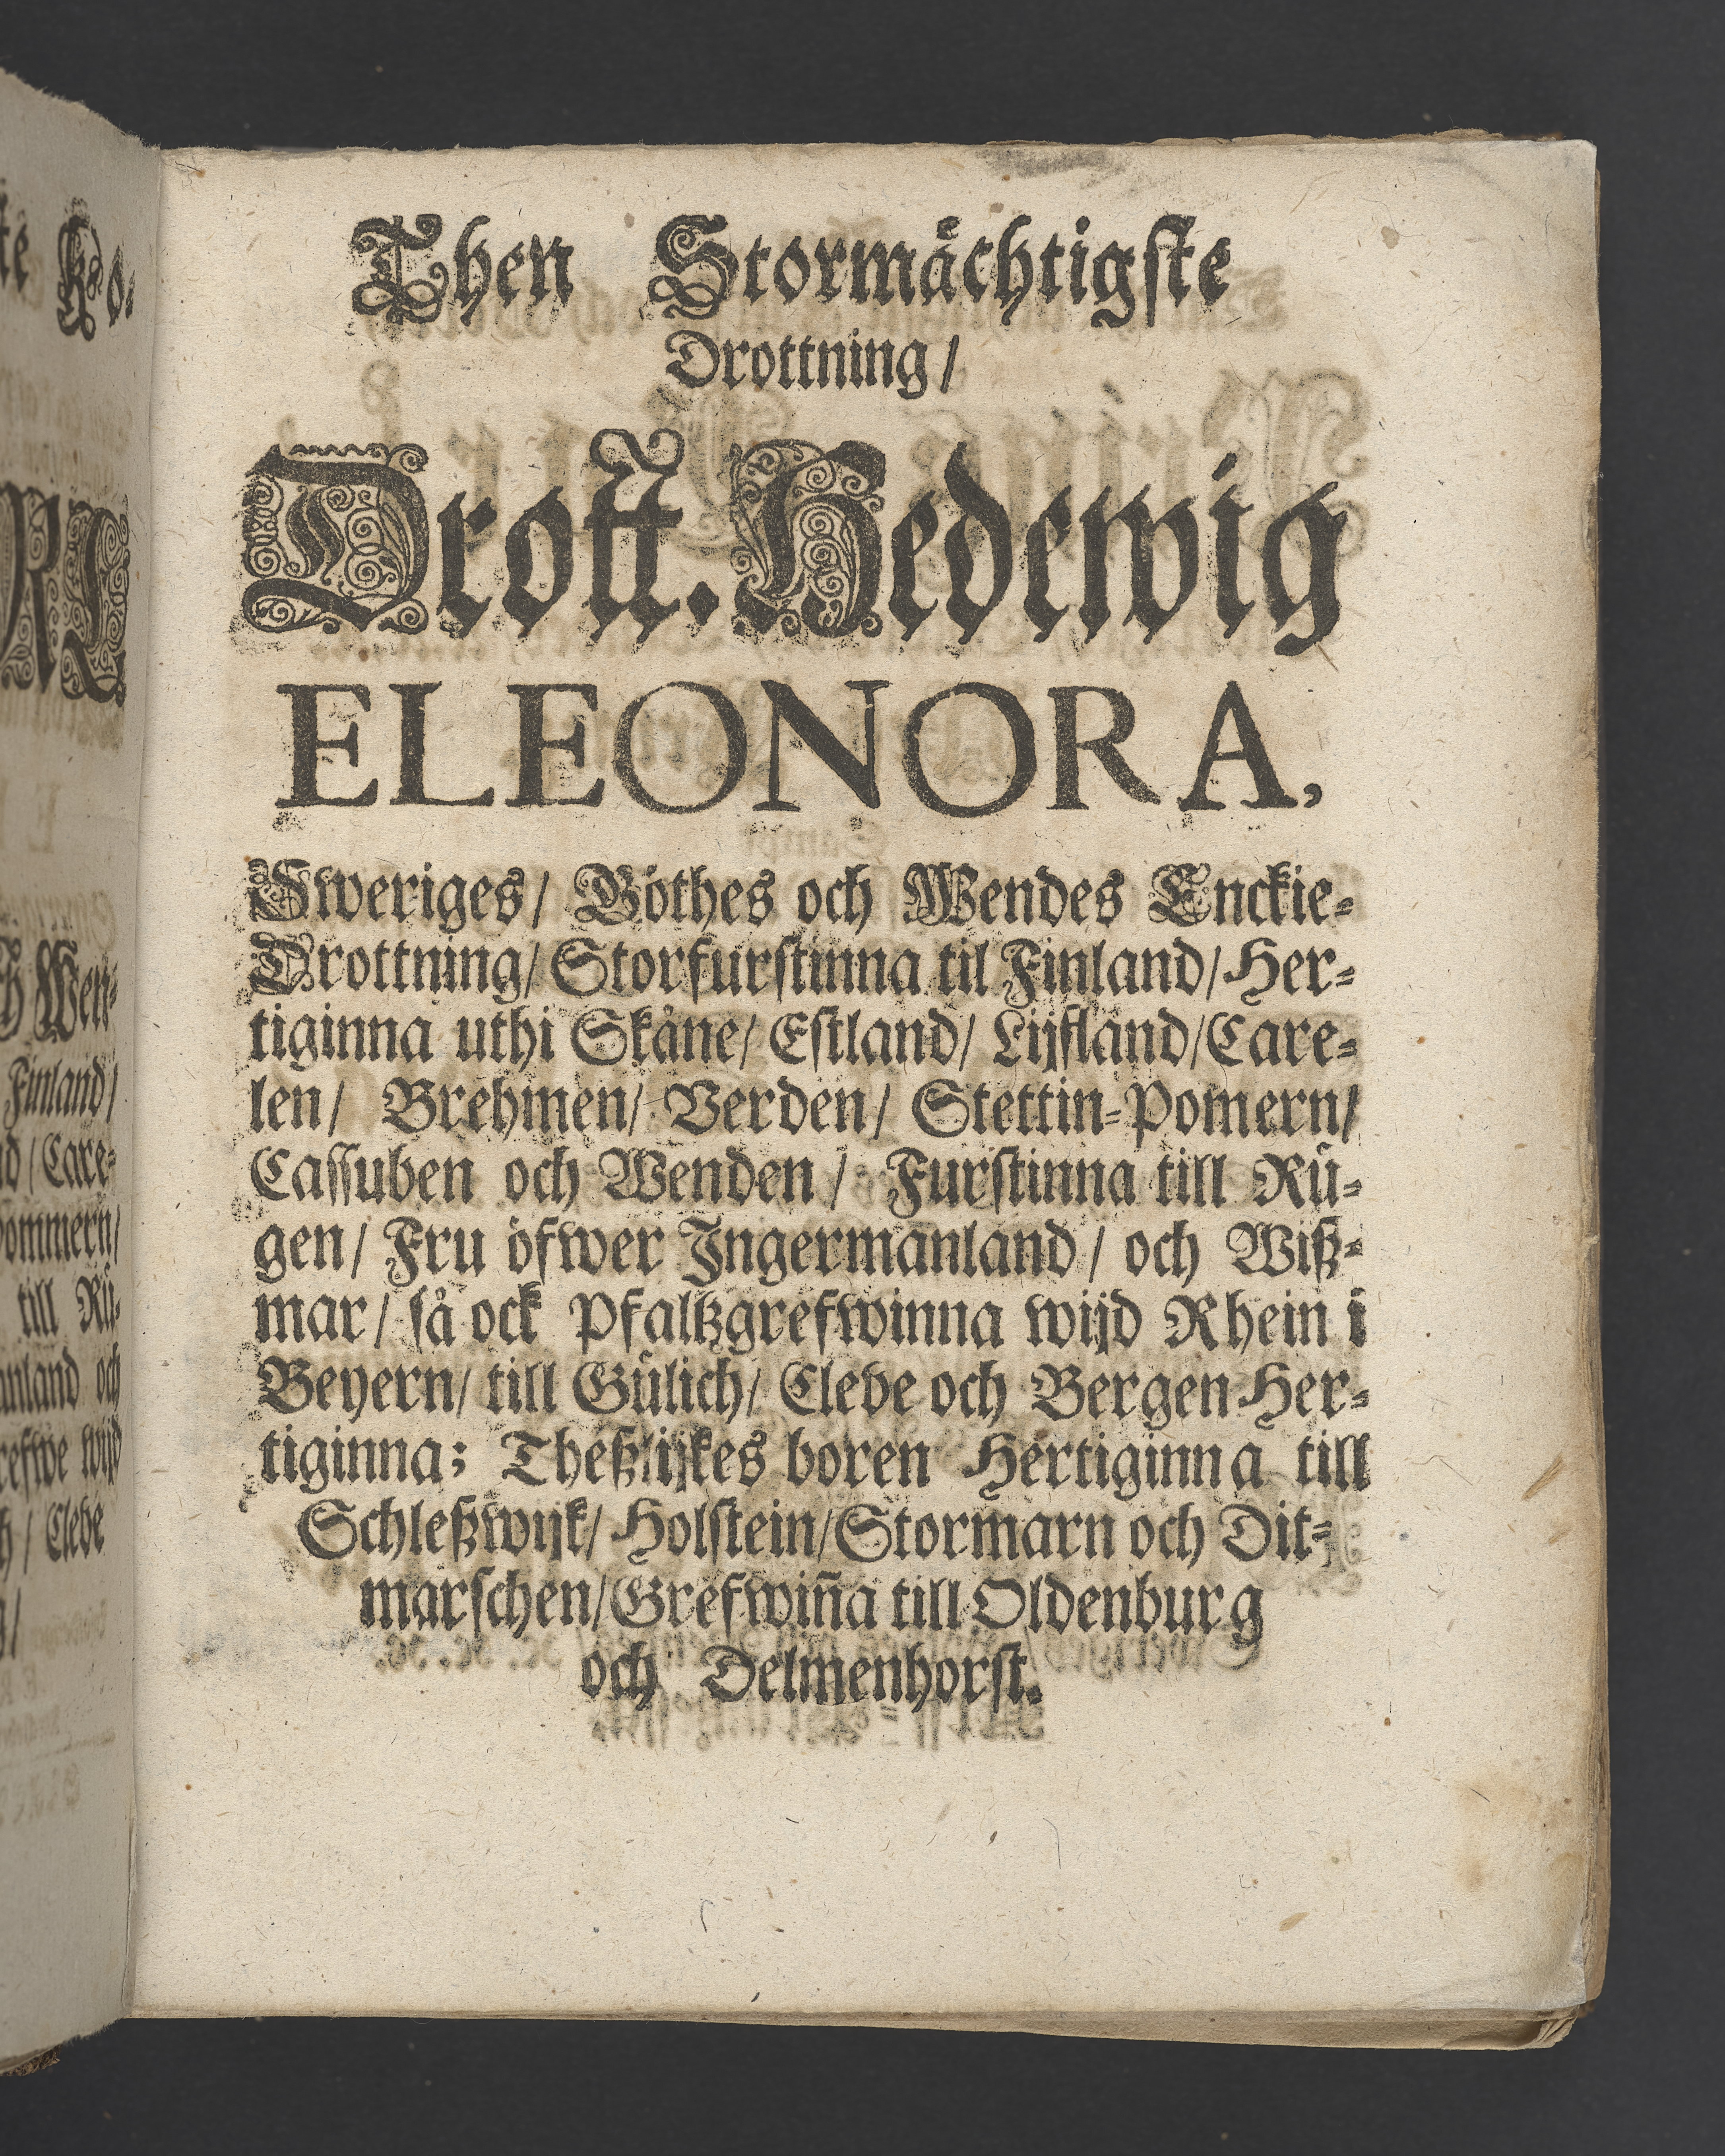 Then Stormächtigste
Drottning/
Drott̃. Hedewig
ELEONORA,
Sweriges/ Göthes och Wendes Enckie-
Drottning/ Storfurstinna til Finland/ Her-
tiginna uthi Skåne/ Estland/ Lijfland/ Care-
len/ Brehmen/ Verden/ Stettin-Pomern/
Cassuben och Wenden/ Furstinna till Rü-
gen/ Fru öfwer Ingermanland/ och Wiß-
mar/ så ock Pfaltzgrefwinna wijd Rhein i
Beyern/ till Gülich/ Cleve och Bergen Her-
tiginna; Theßlijkes boren Hertiginna till
Schleßwijk/ Holstein/ Stormarn och Dit-
marschen/ Grefwiña till Oldenburg
och Delmenhorst.
Finland/
/ Care-
till Rü-
och
wijd
/ Cleve